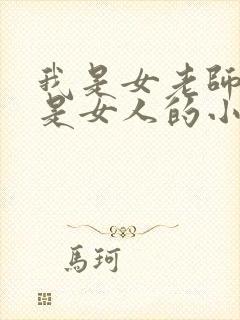 我是女老師
是女人的小
馬珂